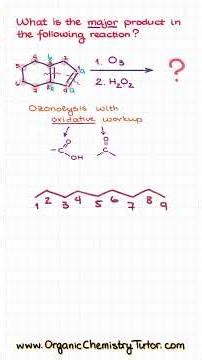 What is the major product in
the following reaction?
1. O3
2. H2O2
?
Ozonolysis with
oxidative workup
O
O
C
OH
C
1 2 3 4 5 6 7 8 9
www.OrganicChemistryTutor.com